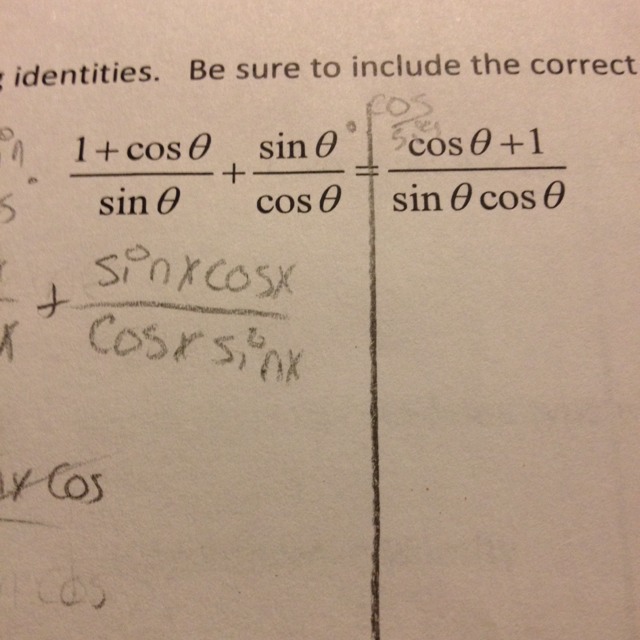 identities. Be sure to include the correct
cos
1+cos θ / sin θ + sin θ / cos θ = cos θ +1 / sin θ cos θ
+ sinxcosx / cosx sinx
x cos
cos